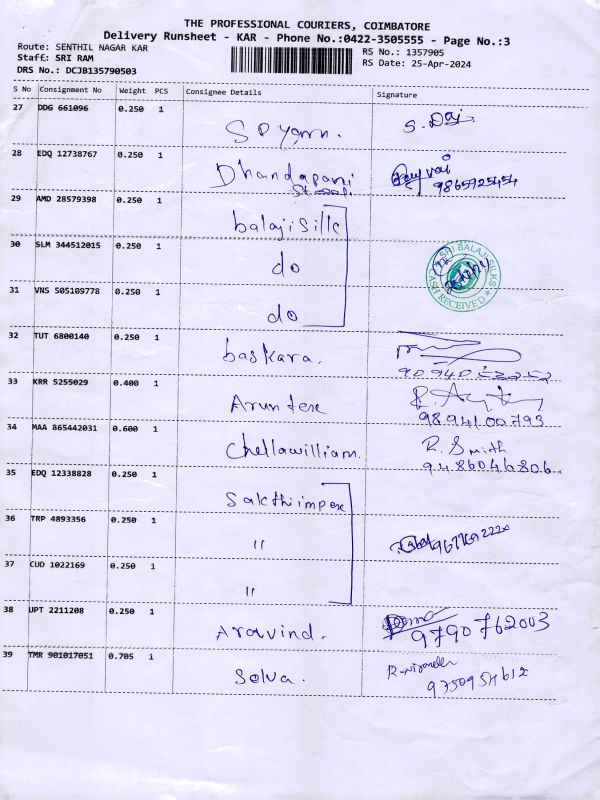 THE PROFESSIONAL COURIERS, COIMBATORE
Delivery Runsheet - KAR - Phone No.:0422-3505555 - Page No.:3
Route: SENTHIL NAGAR KAR
RS No.: 1357905
Staff: SRI RAM
RS Date: 25-Apr-2024
DRS No.: DCJB135790503
S No Consignment No Weight PCS Consignee Details Signature
27 DDG 661096 0.250 1
S P Yarn. S. Daj
28 EDQ 12738767 0.250 1
Dhandapani
9865725454
29 AMD 28579398 0.250 1
balaji silk
30 SLM 344512015 0.250 1
do
SRI BALAJI SILKS
CASH RECEIVED
31 VNS 505109778 0.250 1
do
32 TUT 6800140 0.250 1
baskara.
33 KRR 5255029 0.400 1
Arun tex
98941 00793
34 MAA 865442031 0.600 1
Chellawilliam. R. Smith
9486046806
35 EDQ 12338828 0.250 1
Sakthi impex
36 TRP 4893356 0.250 1
"
37 CUD 1022169 0.250 1
"
38 UPT 2211208 0.250 1
Aravind. 9790762003
39 TMR 901017051 0.705 1
Selva.